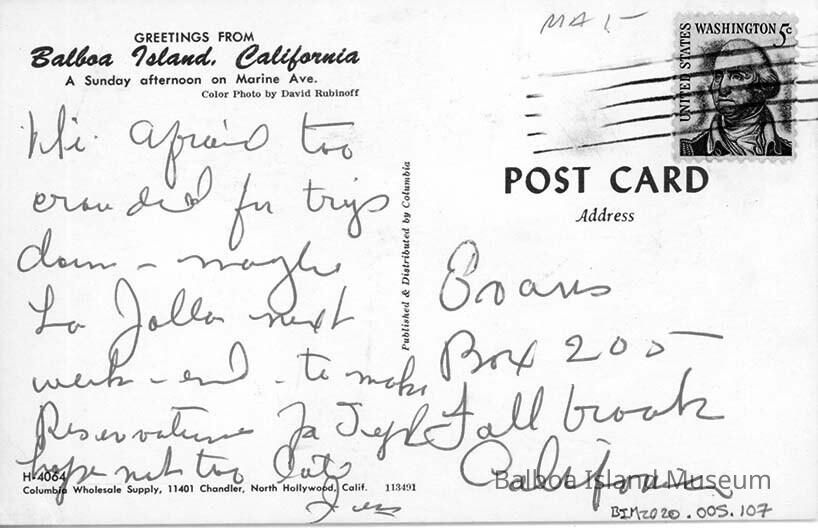 GREETINGS FROM
Balboa Island, California
A Sunday afternoon on Marine Ave.
Color Photo by David Rubinoff
Hi. Afraid too
crowded for trip
down - maybe
La Jolla next
week-end - to make
Reservations
hope not too late
H-4064
Columbia Wholesale Supply, 11401 Chandler, North Hollywood, Calif. 113491
Published & Distributed by Columbia
UNITED STATES
WASHINGTON 5c
POST CARD
Address
Evans
Box 205
Fallbrook
California
Balboa Island Museum
BIM2020.005.107